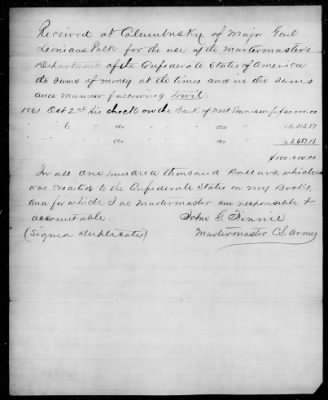 Received at Columbus Ky of Major Genl
Leonidas Polk for the use of the Quartermaster's
Department of the Confederate States of America
do sums of money at the times and in the sums
and manner following Towit.
1861 Oct 2nd His check on the Bank of West Tennessee for
" 6 " do " do
" " do " do
$100,000.00
In all One hundred thousand Dollars which
was credited to the Confederate States on my Books,
and for which I as Quartermaster am responsible &
accountable.
(Signed duplicates) Quartermaster C.S. Army